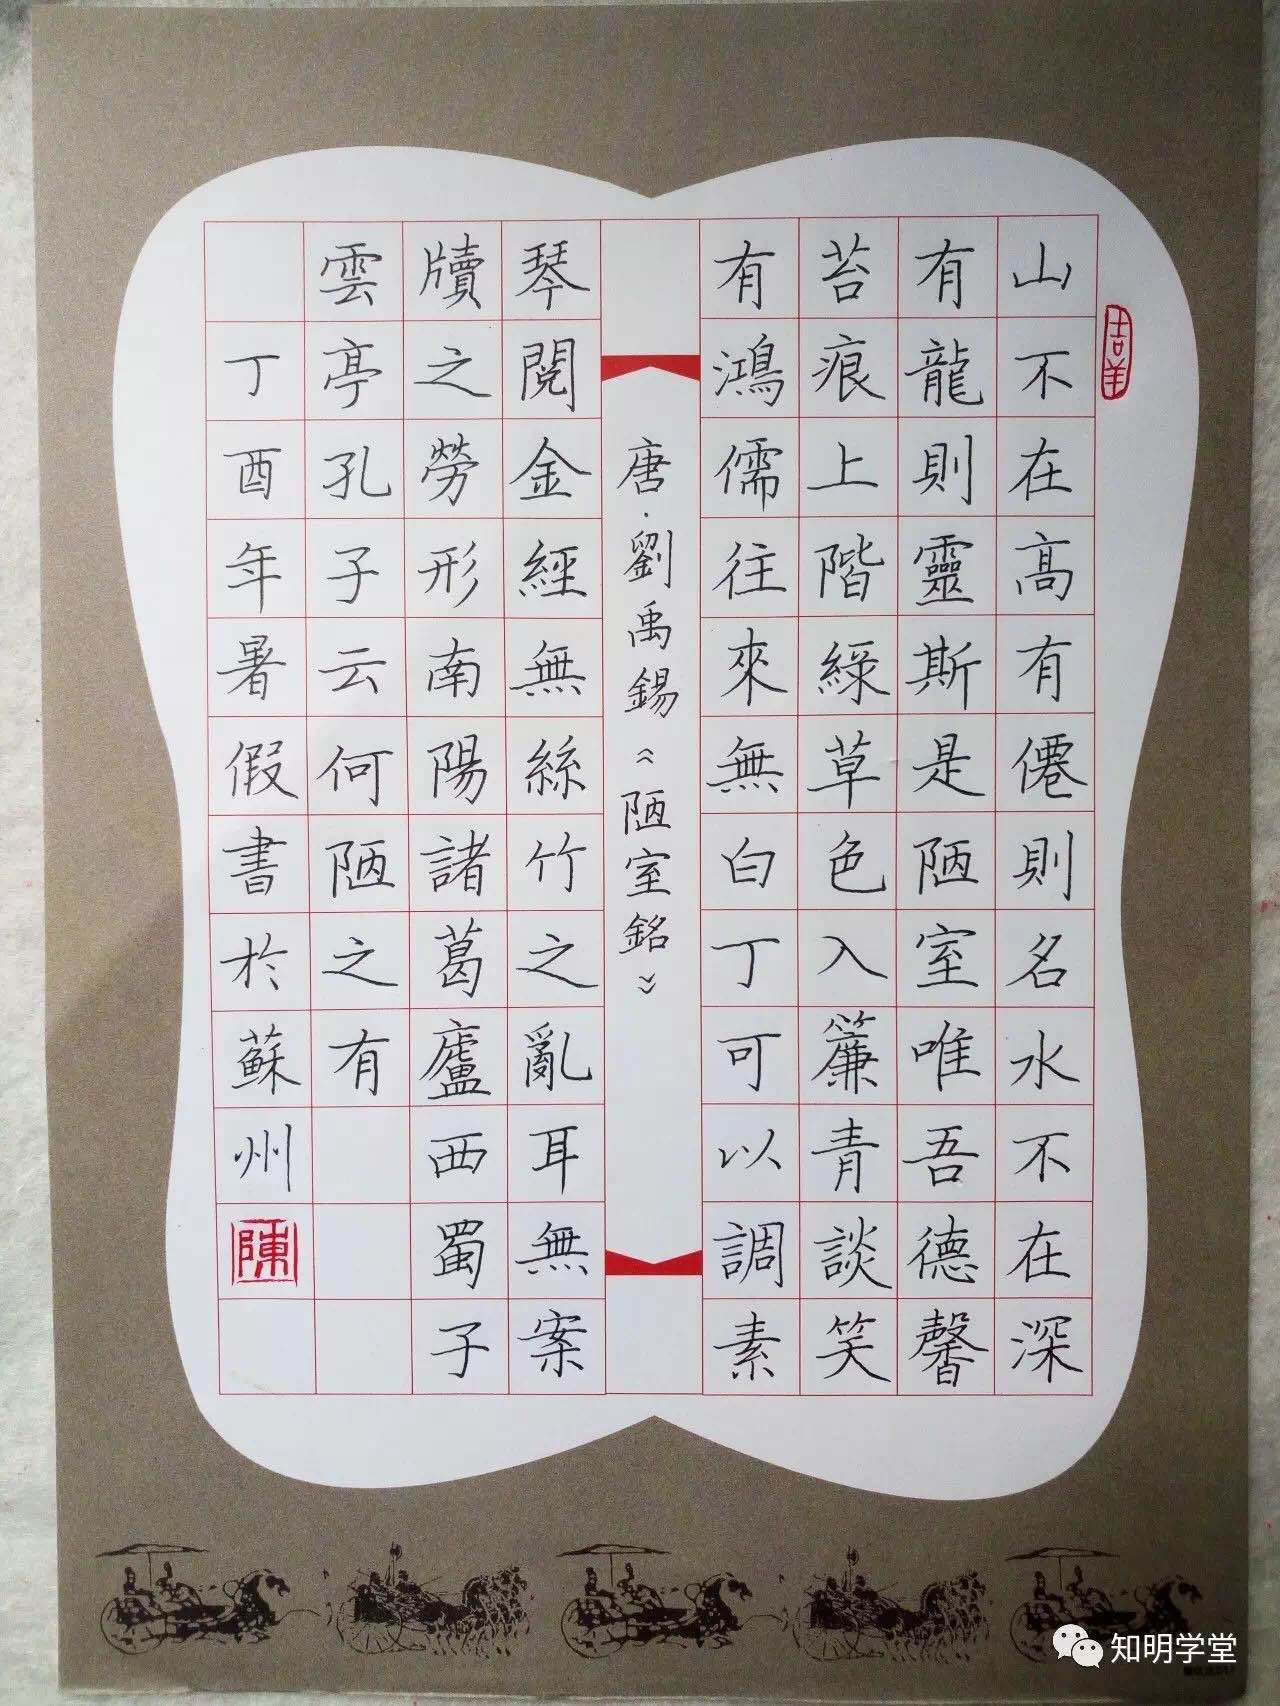 山不在高有僊則名水不在深
有龍則靈斯是陋室唯吾德馨
苔痕上階綠草色入簾青談笑
有鴻儒往來無白丁可以調素
唐·劉禹錫《陋室銘》
琴閱金經無絲竹之亂耳無案
牘之勞形南陽諸葛廬西蜀子
雲亭孔子云何陋之有
丁酉年暑假書於蘇州
陳
吉羊
知明学堂